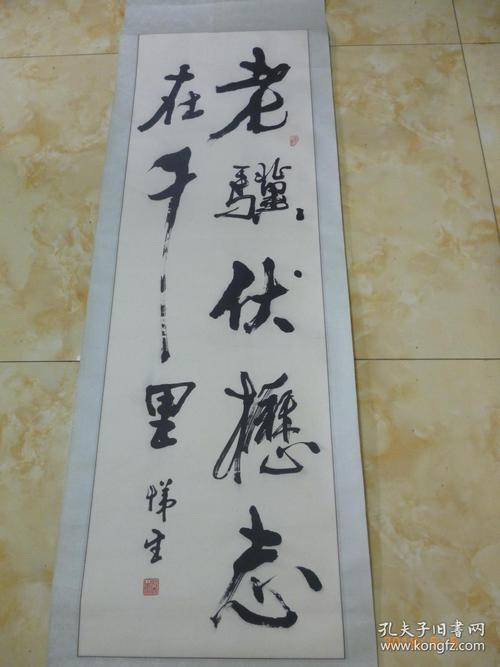 老驥伏櫪志
在千里
悌生
孔夫子旧书网
www.kongfz.com